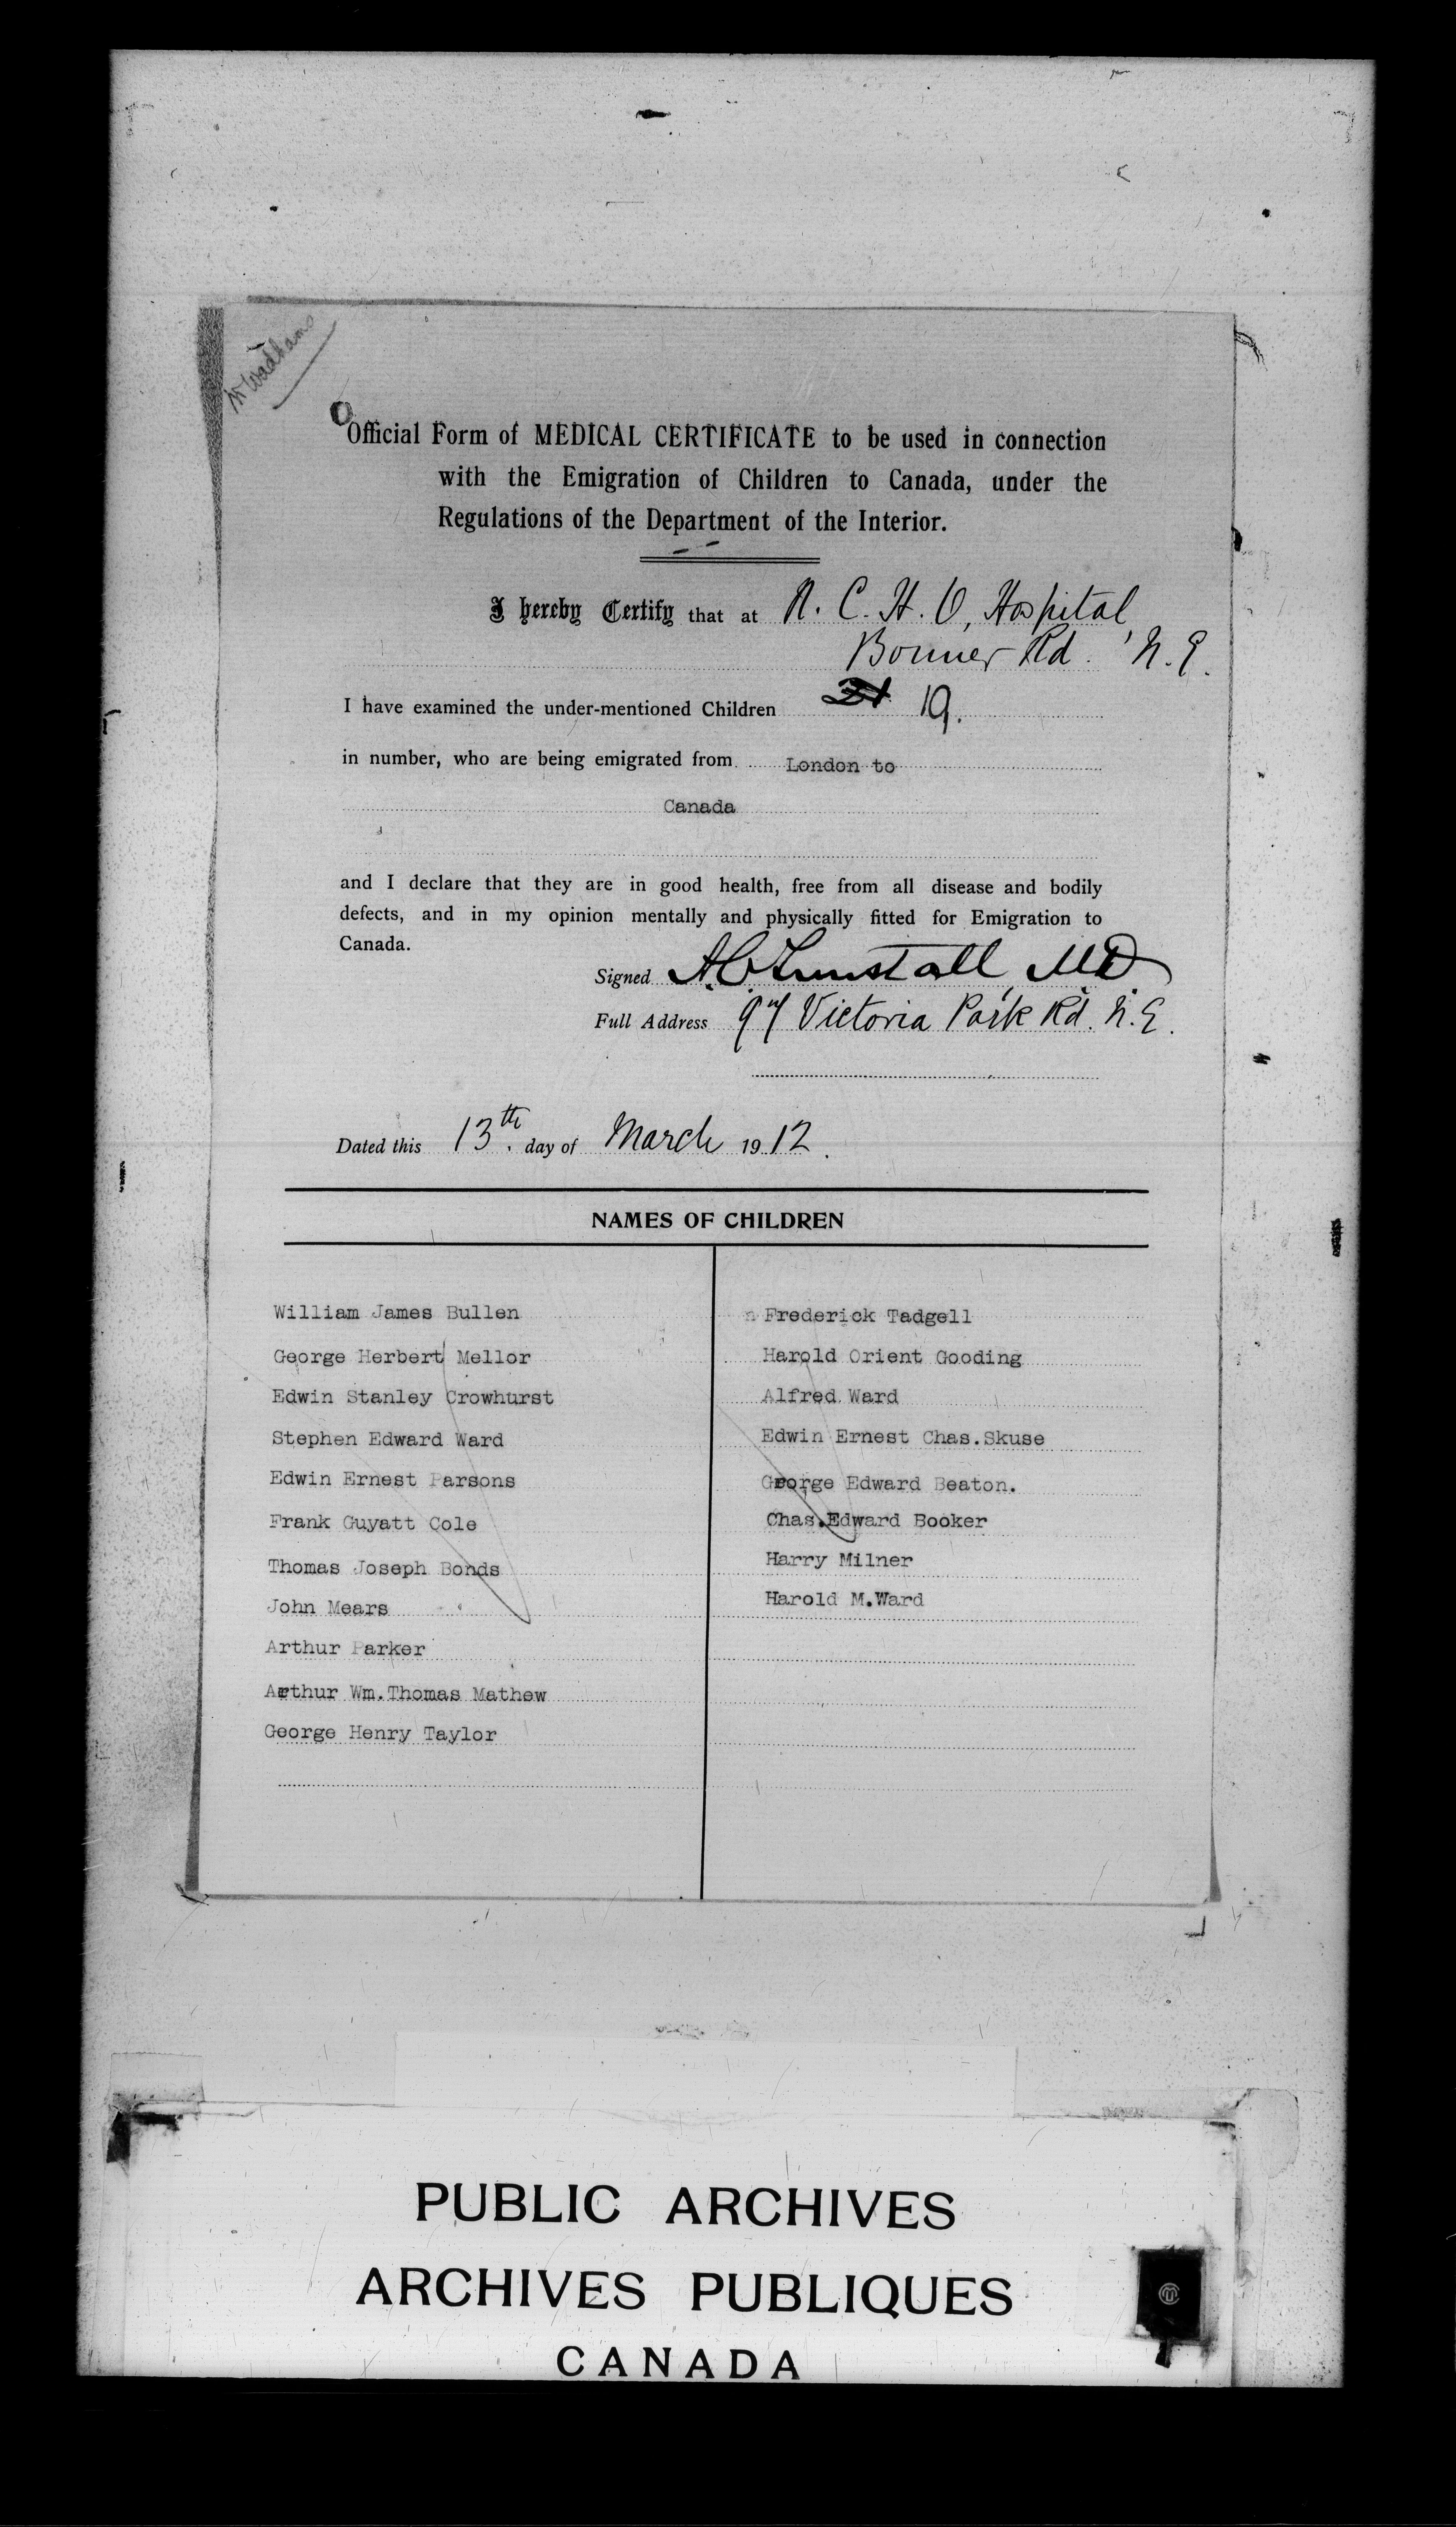 W Wadhams
Official Form of MEDICAL CERTIFICATE to be used in connection
with the Emigration of Children to Canada, under the
Regulations of the Department of the Interior.
I hereby Certify that at N. C. H. O, Hospital
Bonner Rd. N.E.
I have examined the under-mentioned Children 21 19.
in number, who are being emigrated from London to
Canada
and I declare that they are in good health, free from all disease and bodily
defects, and in my opinion mentally and physically fitted for Emigration to
Canada.
Signed A.C. Tunstall, MD
Full Address 97 Victoria Park Rd. N.E.
Dated this 13th. day of March 1912.
NAMES OF CHILDREN
William James Bullen
George Herbert Mellor
Edwin Stanley Crowhurst
Stephen Edward Ward
Edwin Ernest Parsons
Frank Guyatt Cole
Thomas Joseph Bonds
John Mears
Arthur Parker
Arthur Wm.Thomas Mathew
George Henry Taylor
Frederick Tadgell
Harold Orient Gooding
Alfred Ward
Edwin Ernest Chas.Skuse
George Edward Beaton.
Chas.Edward Booker
Harry Milner
Harold M.Ward
PUBLIC ARCHIVES
ARCHIVES PUBLIQUES
CANADA